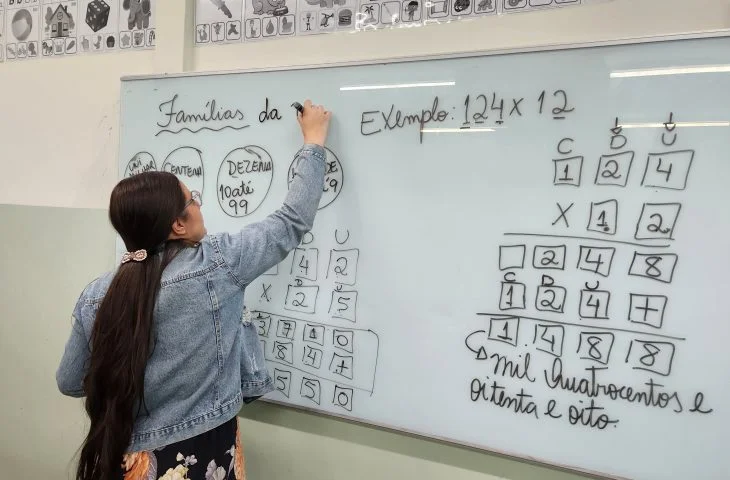 Famílias da
CENTENA
DEZENA
10 até
99
U
4 2
X 2 5
3 7 1 0
8 4 +
5 5 0
Exemplo: 124 x 12
C D U
1 2 4
X 1 2
2 4 8
C D U
1 2 4 +
1 4 8 8
mil quatrocentos e
oitenta e oito.